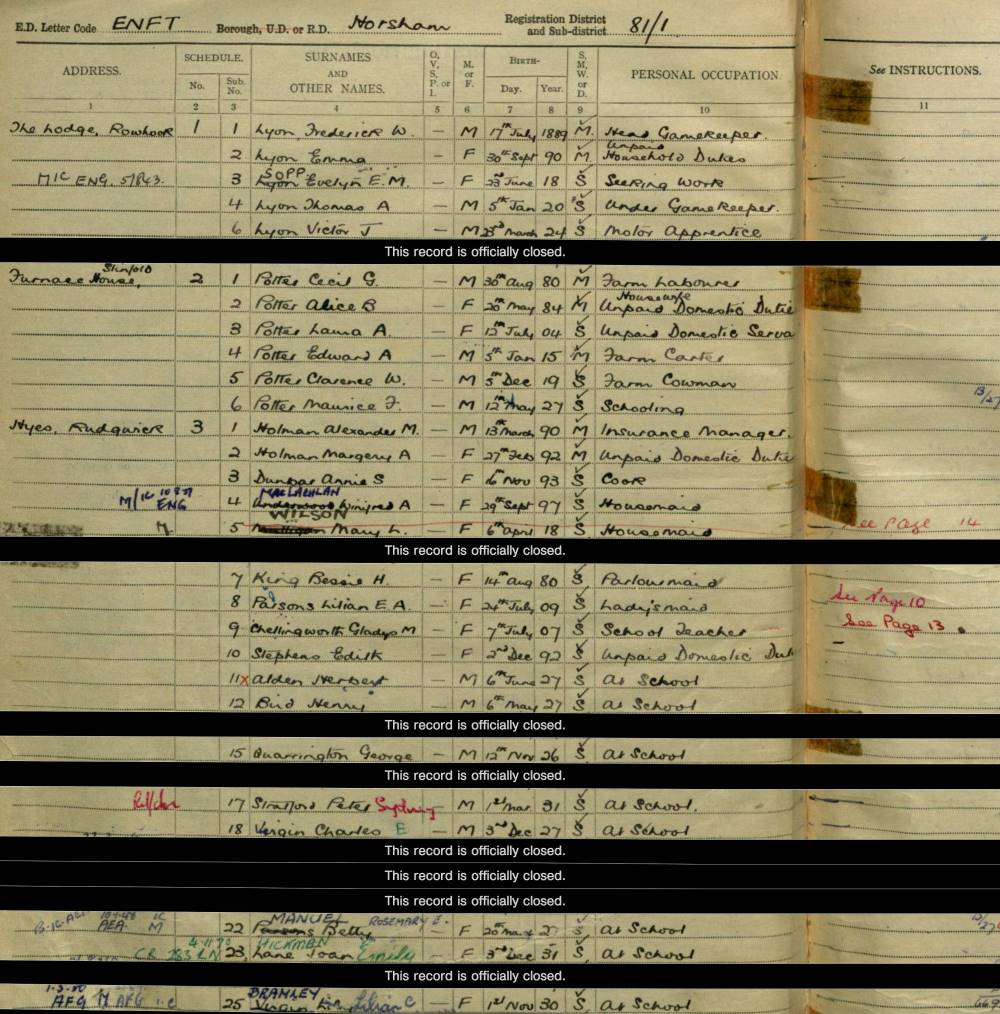 E.D. Letter Code ENFT Borough, U.D. or R.D. Horsham Registration District and Sub-district 81/1
ADDRESS. SCHEDULE. No. Sub. No. SURNAMES AND OTHER NAMES. O, V, S, P, or I. M. or F. BIRTH- Day. Year. S, M, W, or D. PERSONAL OCCUPATION. See INSTRUCTIONS.
1 2 3 4 5 6 7 8 9 10 11
The Lodge, Rowhook 1 1 Lyon Frederick W. — M 17th July 1889 M. Head Gamekeeper.
Unpaid
2 Lyon Emma — F 30th Sept 90 M Household Duties
SOPP
MIC ENG. 3 Lyon Evelyn E.M. — F 23rd June 18 S Seeking Work
4 Lyon Thomas A — M 5th Jan 20 S Under Gamekeeper.
6 Lyon Victor J — M 23rd March 24 S Motor Apprentice
This record is officially closed.
Slinfold
Furnace House, 2 1 Potter Cecil G. — M 30th Aug 80 M Farm Labourer
Housewife
2 Potter Alice B — F 20th May 84 M Unpaid Domestic Dutie
3 Potter Laura A. — F 12th July 04 S Unpaid Domestic Serva
4 Potter Edward A — M 5th Jan 15 M Farm Carter
5 Potter Clarence W. — M 5th Dec 19 S Farm Cowman
6 Potter Maurice F. — M 12th May 27 S Schooling
Hyes, Rudgwick 3 1 Holman Alexander M. — M 13th March 90 M Insurance Manager.
2 Holman Margery A — F 27th Feb 92 M Unpaid Domestic Dutie
3 Dunbar Annie S — F 16 Nov 93 S Cook
MACLACHLAN
M/IC ENG 4 Underwood Winifred A — F 29th Sept 97 S Housemaid
WILSON
M. 5 Mary L. — F 6th April 18 S Housemaid See Page 14
This record is officially closed.
7 King Bessie H. — F 14th Aug 80 S Parlourmaid
8 Parsons Lilian E.A. — F 24th July 09 S Lady's maid See Page 10
9 Chellingworth Gladys M — F 7th July 07 S School Teacher See Page 13
10 Stephens Edith — F 2nd Dec 92 S Unpaid Domestic Duti
11x Alden Herbert — M 6th June 27 S At School
12 Bird Henry — M 6th May 27 S At School
This record is officially closed.
15 Quarrington George — M 12th Nov 26 S At School
This record is officially closed.
17 Stratford Peter Sydney M 1st Mar. 31 S At School.
18 Virgin Charles E — M 3rd Dec 27 S At School
This record is officially closed.
This record is officially closed.
This record is officially closed.
MANUEL ROSEMARY E.
AEA. M 22 Parsons Betty — F S At School
HICKMAN
CR 23 Lane Joan Emily — F 3rd Dec 31 S At School
This record is officially closed.
BRAMLEY
AFG M AFG 25 Virgin Lilian C — F 1st Nov 30 S At School